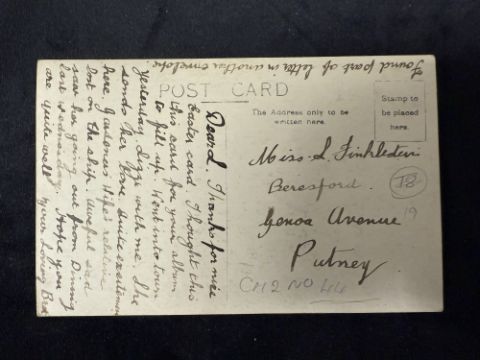 Found part of letter in another envelope
POST CARD
The Address only to be
written here.
Stamp to
be placed
here.
Dear L. Thanks for nice
Easter card. Thought this
this card for your album
to fill up. Went into town
Yesterday. Lizzi with me. She
sends her love. Quite excitement
here Gardeners Wife's relative
lost on the ship. Awful sad
saw her going out from Dining
last Wednesday. Hope you
are quite well your loving Bro
Miss L Finklestein
Beresford.
Genoa Avenue
Putney
18
19
CH2 NO 44